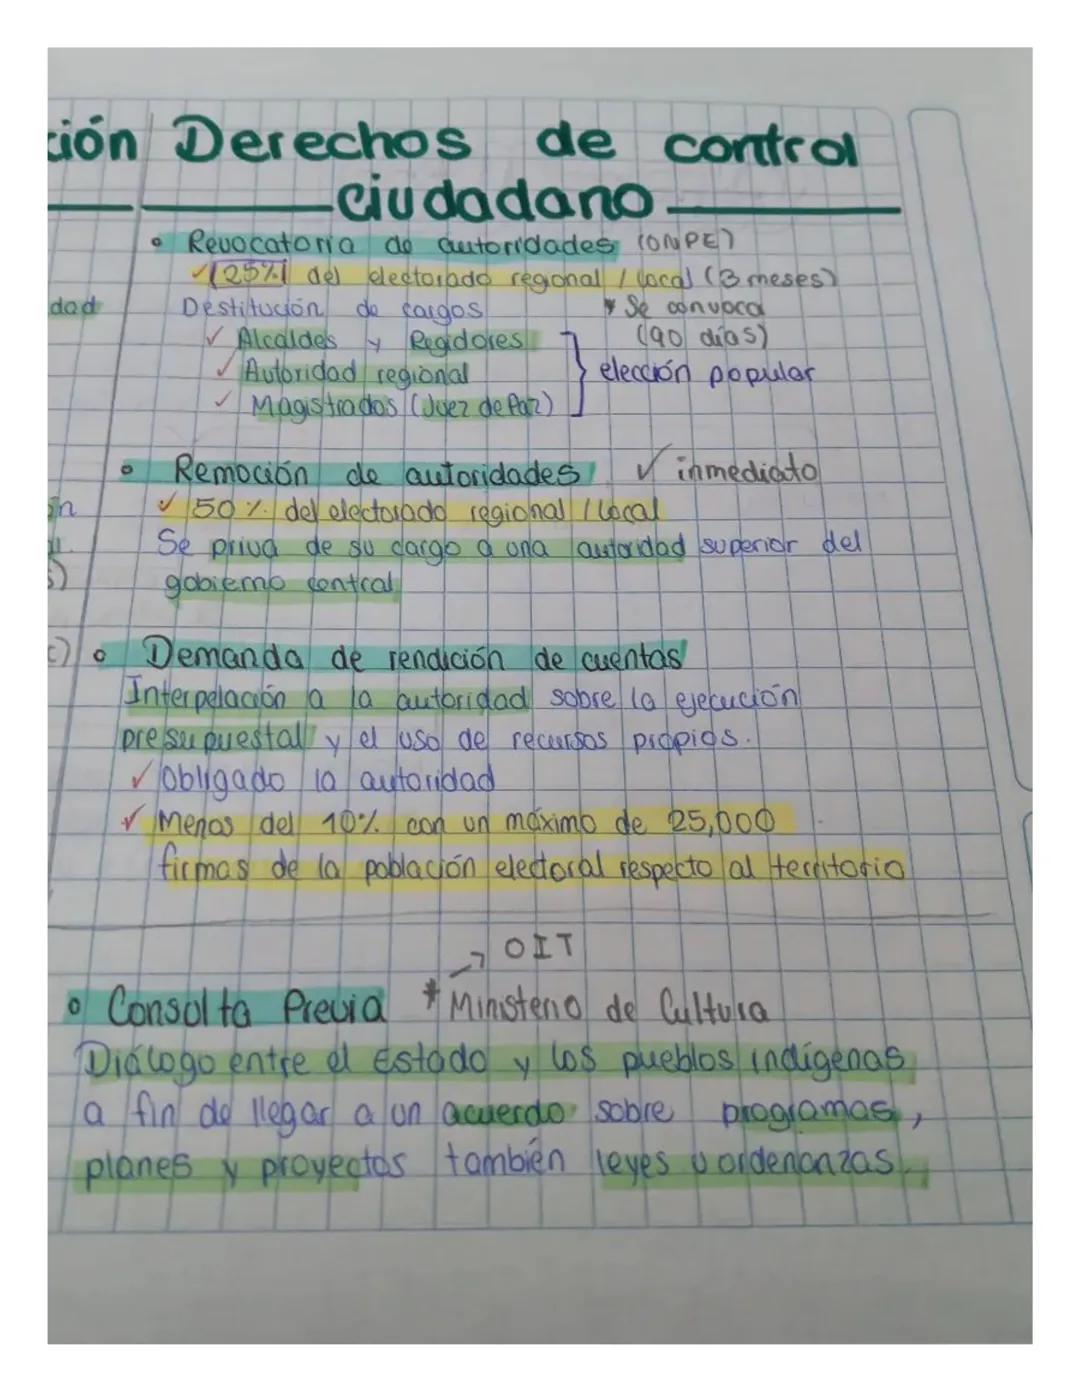 ción Derechos de control
ciudadano
• Revocatoria de autoridades (ONPE)
✓ 25% del electorado regional / local (3 meses)
dad
Destitución de cargos * Se convoca
✓ Alcaldes y Regidores (90 días)
✓ Autoridad regional elección popular
✓ Magistrados (Juez de Paz)
• Remoción de autoridades ✓ inmediato
ón
✓ 50% del electorado regional / local
Se priva de su cargo a una autoridad superior del
gobierno central
• Demanda de rendición de cuentas
Interpelación a la autoridad sobre la ejecución
presupuestal y el uso de recursos propios.
✓ Obligado la autoridad
✓ Menos del 10% con un máximo de 25,000
firmas de la población electoral respecto al territorio
→ OIT
• Consulta Previa * Ministerio de Cultura
Diálogo entre el Estado y los pueblos indígenas
a fin de llegar a un acuerdo sobre programas,
planes y proyectos también leyes u ordenanzas.